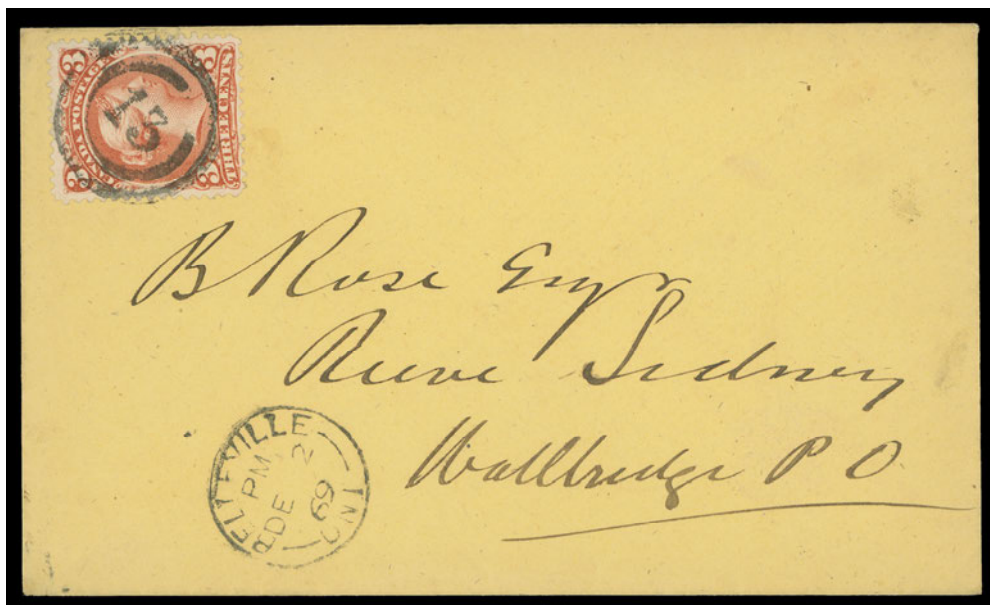 3 CANADA POSTAGE 3
3 THREE CENTS 3
15
B Rose Esqr
Reeve Sidney
Wallbridge P O
BELLEVILLE
PM 2
DE 69
ONT